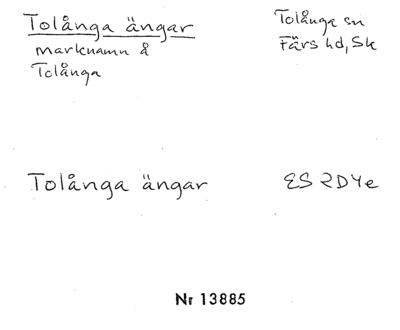 Tolånga ängar
marknamn å
Tolånga
Tolånga sn
Färs hd, Sk
Tolånga ängar
ES 2D4e
Nr 13885